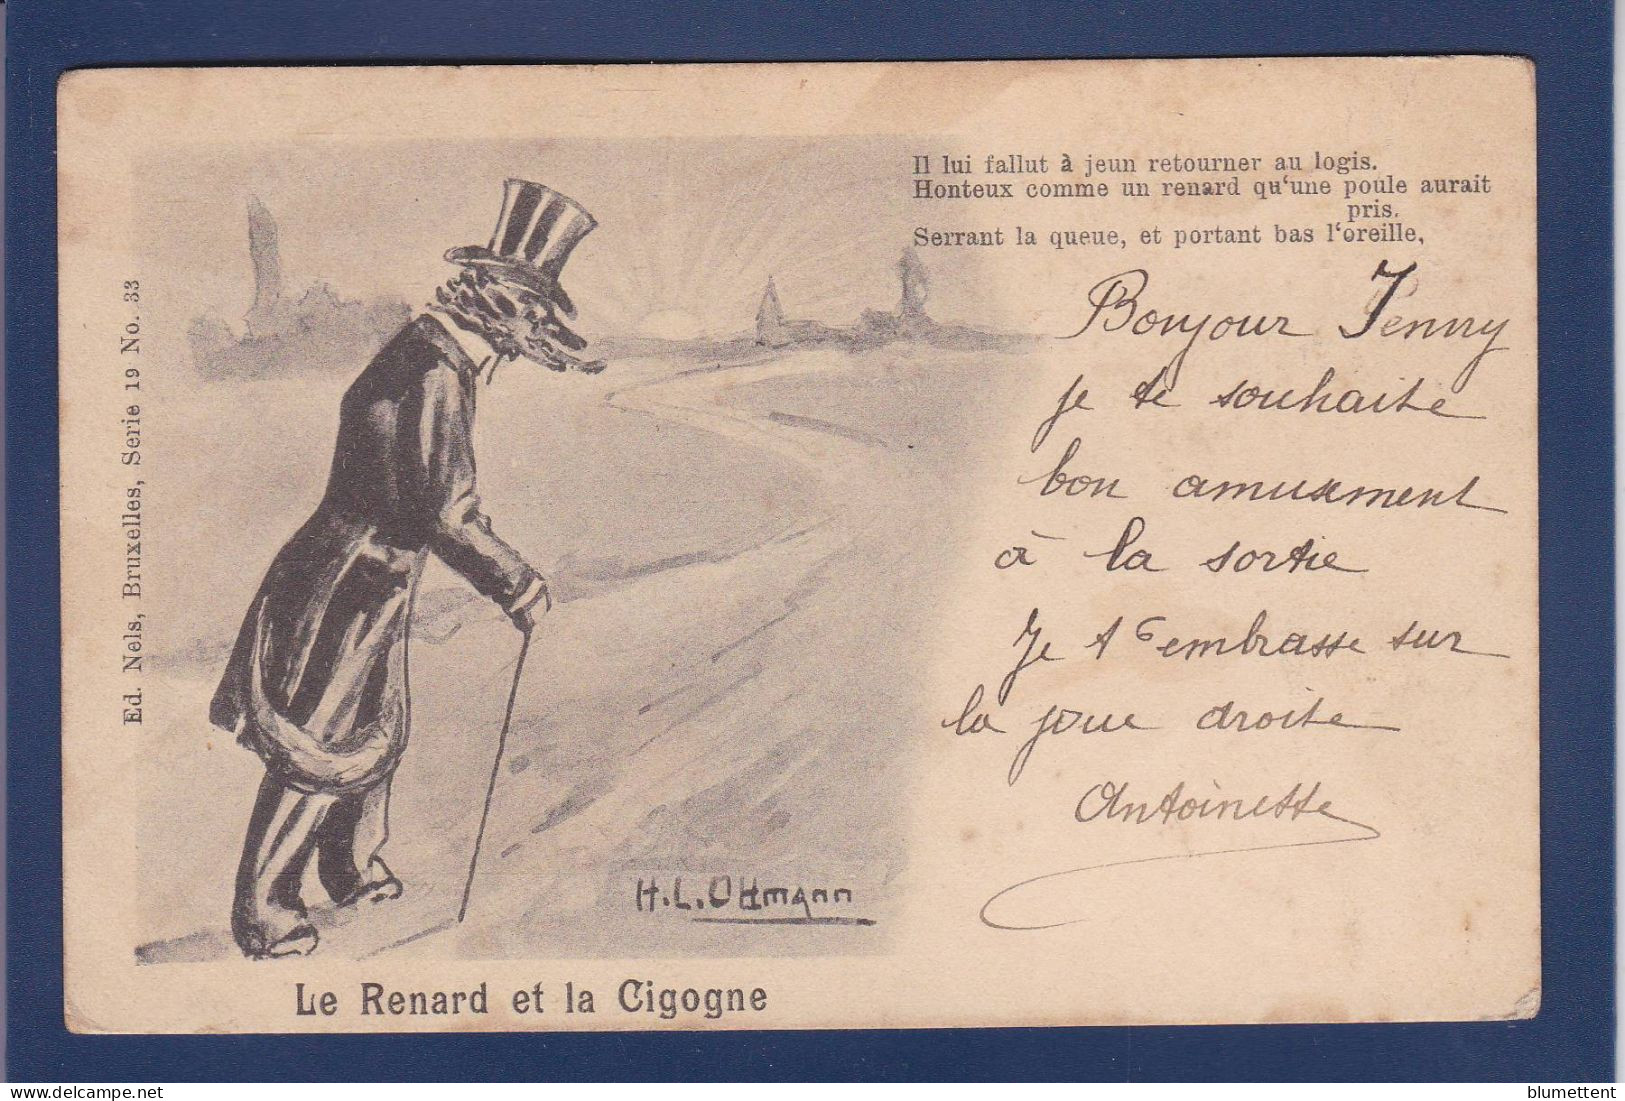 Il lui fallut à jeun retourner au logis.
Honteux comme un renard qu‘une poule aurait
pris.
Serrant la queue, et portant bas l‘oreille,
Bonjour Jenny
je te souhaite
bon amusement
à la sortie
Je t'embrasse sur
la joue droite
Antoinette
Ed. Nels, Bruxelles, Serie 19 No. 33
H.L.Ottmann
Le Renard et la Cigogne
blumettent